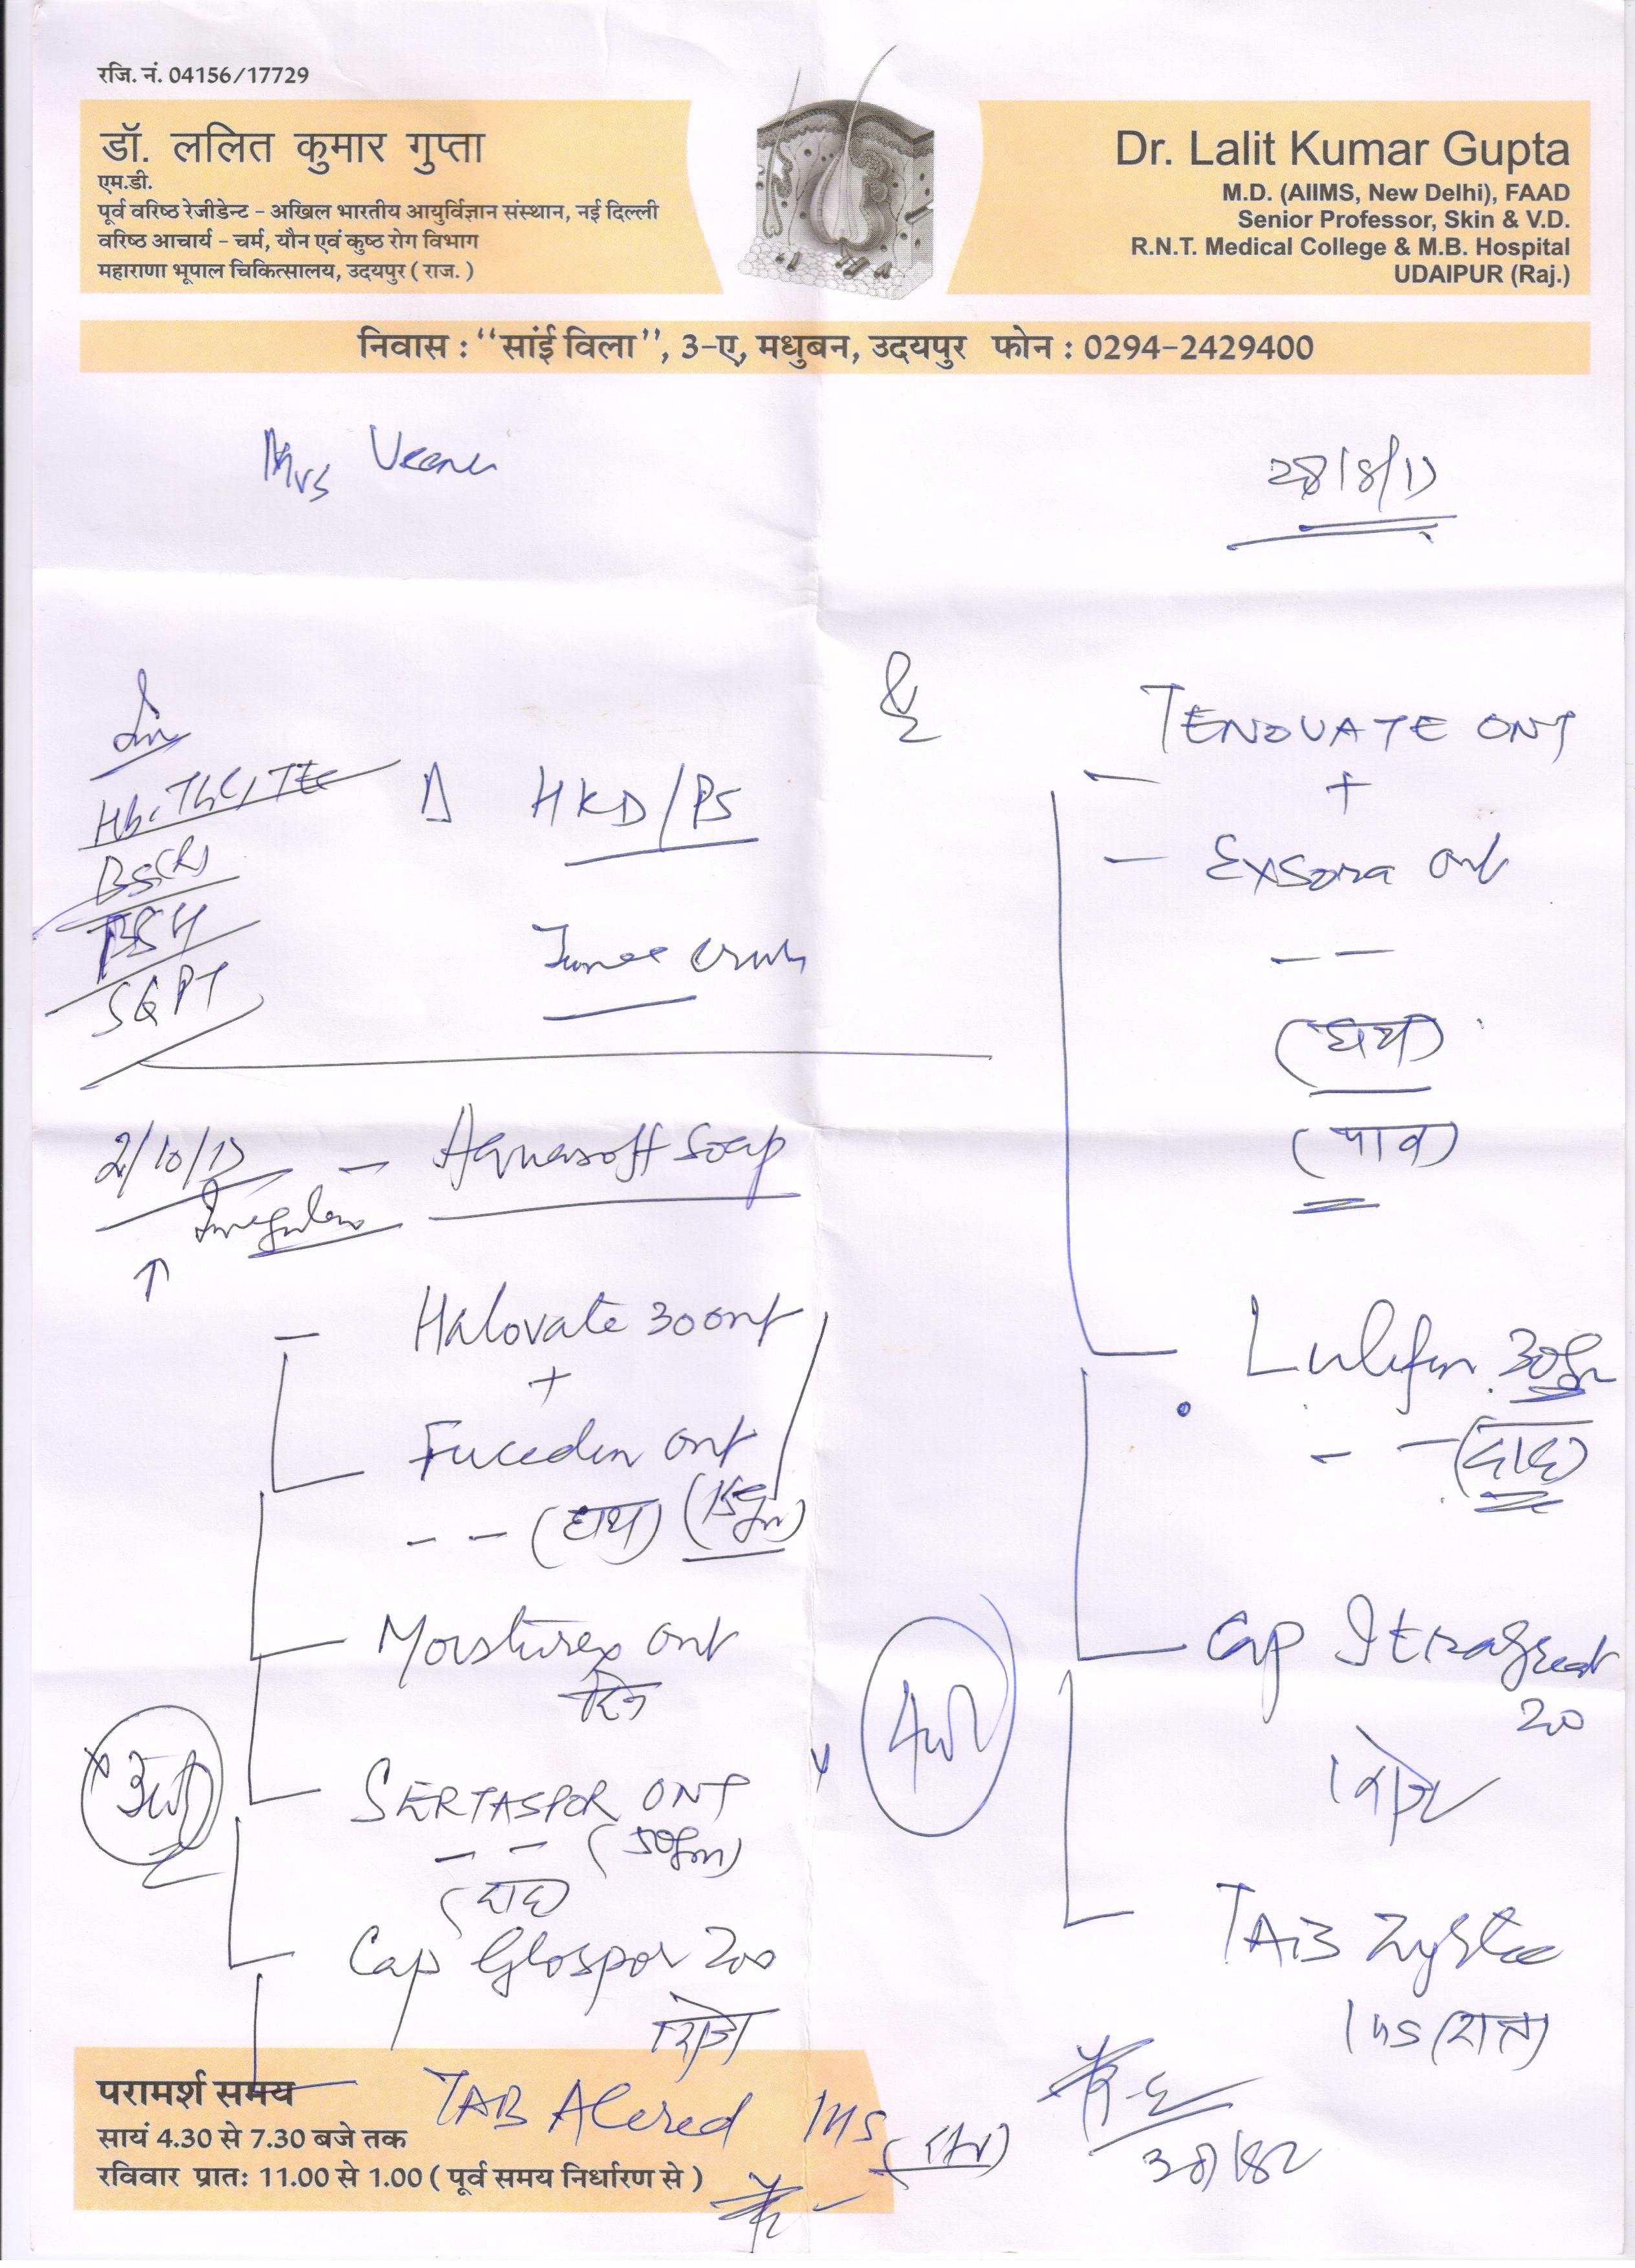 रजि. नं. 04156/17729
डॉ. ललित कुमार गुप्ता
एम.डी.
पूर्व वरिष्ठ रेजीडेन्ट - अखिल भारतीय आयुर्विज्ञान संस्थान, नई दिल्ली
वरिष्ठ आचार्य - चर्म, यौन एवं कुष्ठ रोग विभाग
महाराणा भूपाल चिकित्सालय, उदयपुर ( राज. )
Dr. Lalit Kumar Gupta
M.D. (AIIMS, New Delhi), FAAD
Senior Professor, Skin & V.D.
R.N.T. Medical College & M.B. Hospital
UDAIPUR (Raj.)
निवास : ‘‘सांई विला’’, 3-ए, मधुबन, उदयपुर फोन : 0294-2429400
Mrs Veena
28/8/17
Hb, TLC,
SGPT
Δ HKD/PS
Tinea cruris
2/10/17
Irregular
↑
- Aquasoft Soap
- Halovate 30 ont
+
Fucidin ont
- - (हाथ) (15gm)
Moisturex ont
SERTASPOR ONT
- - (50gm)
(दाद)
Cap Glospor 200
TAB Alered 1HS
- TENOVATE ONT
+
- Exsora ont
- -
(हाथ)
(पांव)
Lulifin 30gm
- - (दाद)
Cap Itragreat
20
TAB
1 HS (रात)
परामर्श समय
सायं 4.30 से 7.30 बजे तक
रविवार प्रातः 11.00 से 1.00 ( पूर्व समय निर्धारण से )